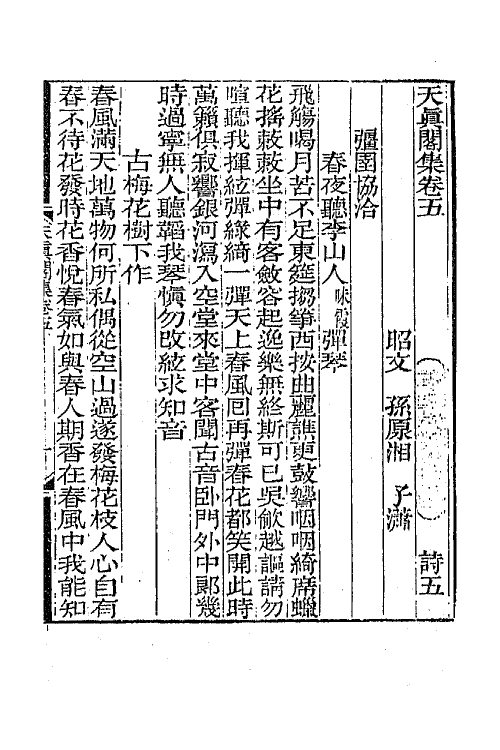 天眞閣集卷五
詩五
昭文　孫原湘　子瀟
彊圉協洽
春夜聽李山人味霞彈琴
飛觴喝月苦不足東筵搊箏西按曲麗譙更鼓響咽咽綺席蠟
花搖蔌蔌坐中有客斂容起逸樂無終斯可已吳歈越謳請勿
喧聽我揮絃彈綠綺一彈天上春風回再彈春花都笑開此時
萬籟俱寂響銀河瀉入空堂來堂中客聞古音臥門外中郞幾
時過寧無人聽韜我琴愼勿改絃求知音
古梅花樹下作
春風滿天地萬物何所私偶從空山過遂發梅花枝人心自有
春不待花發時花香悅春氣如與春人期香在春風中我能知